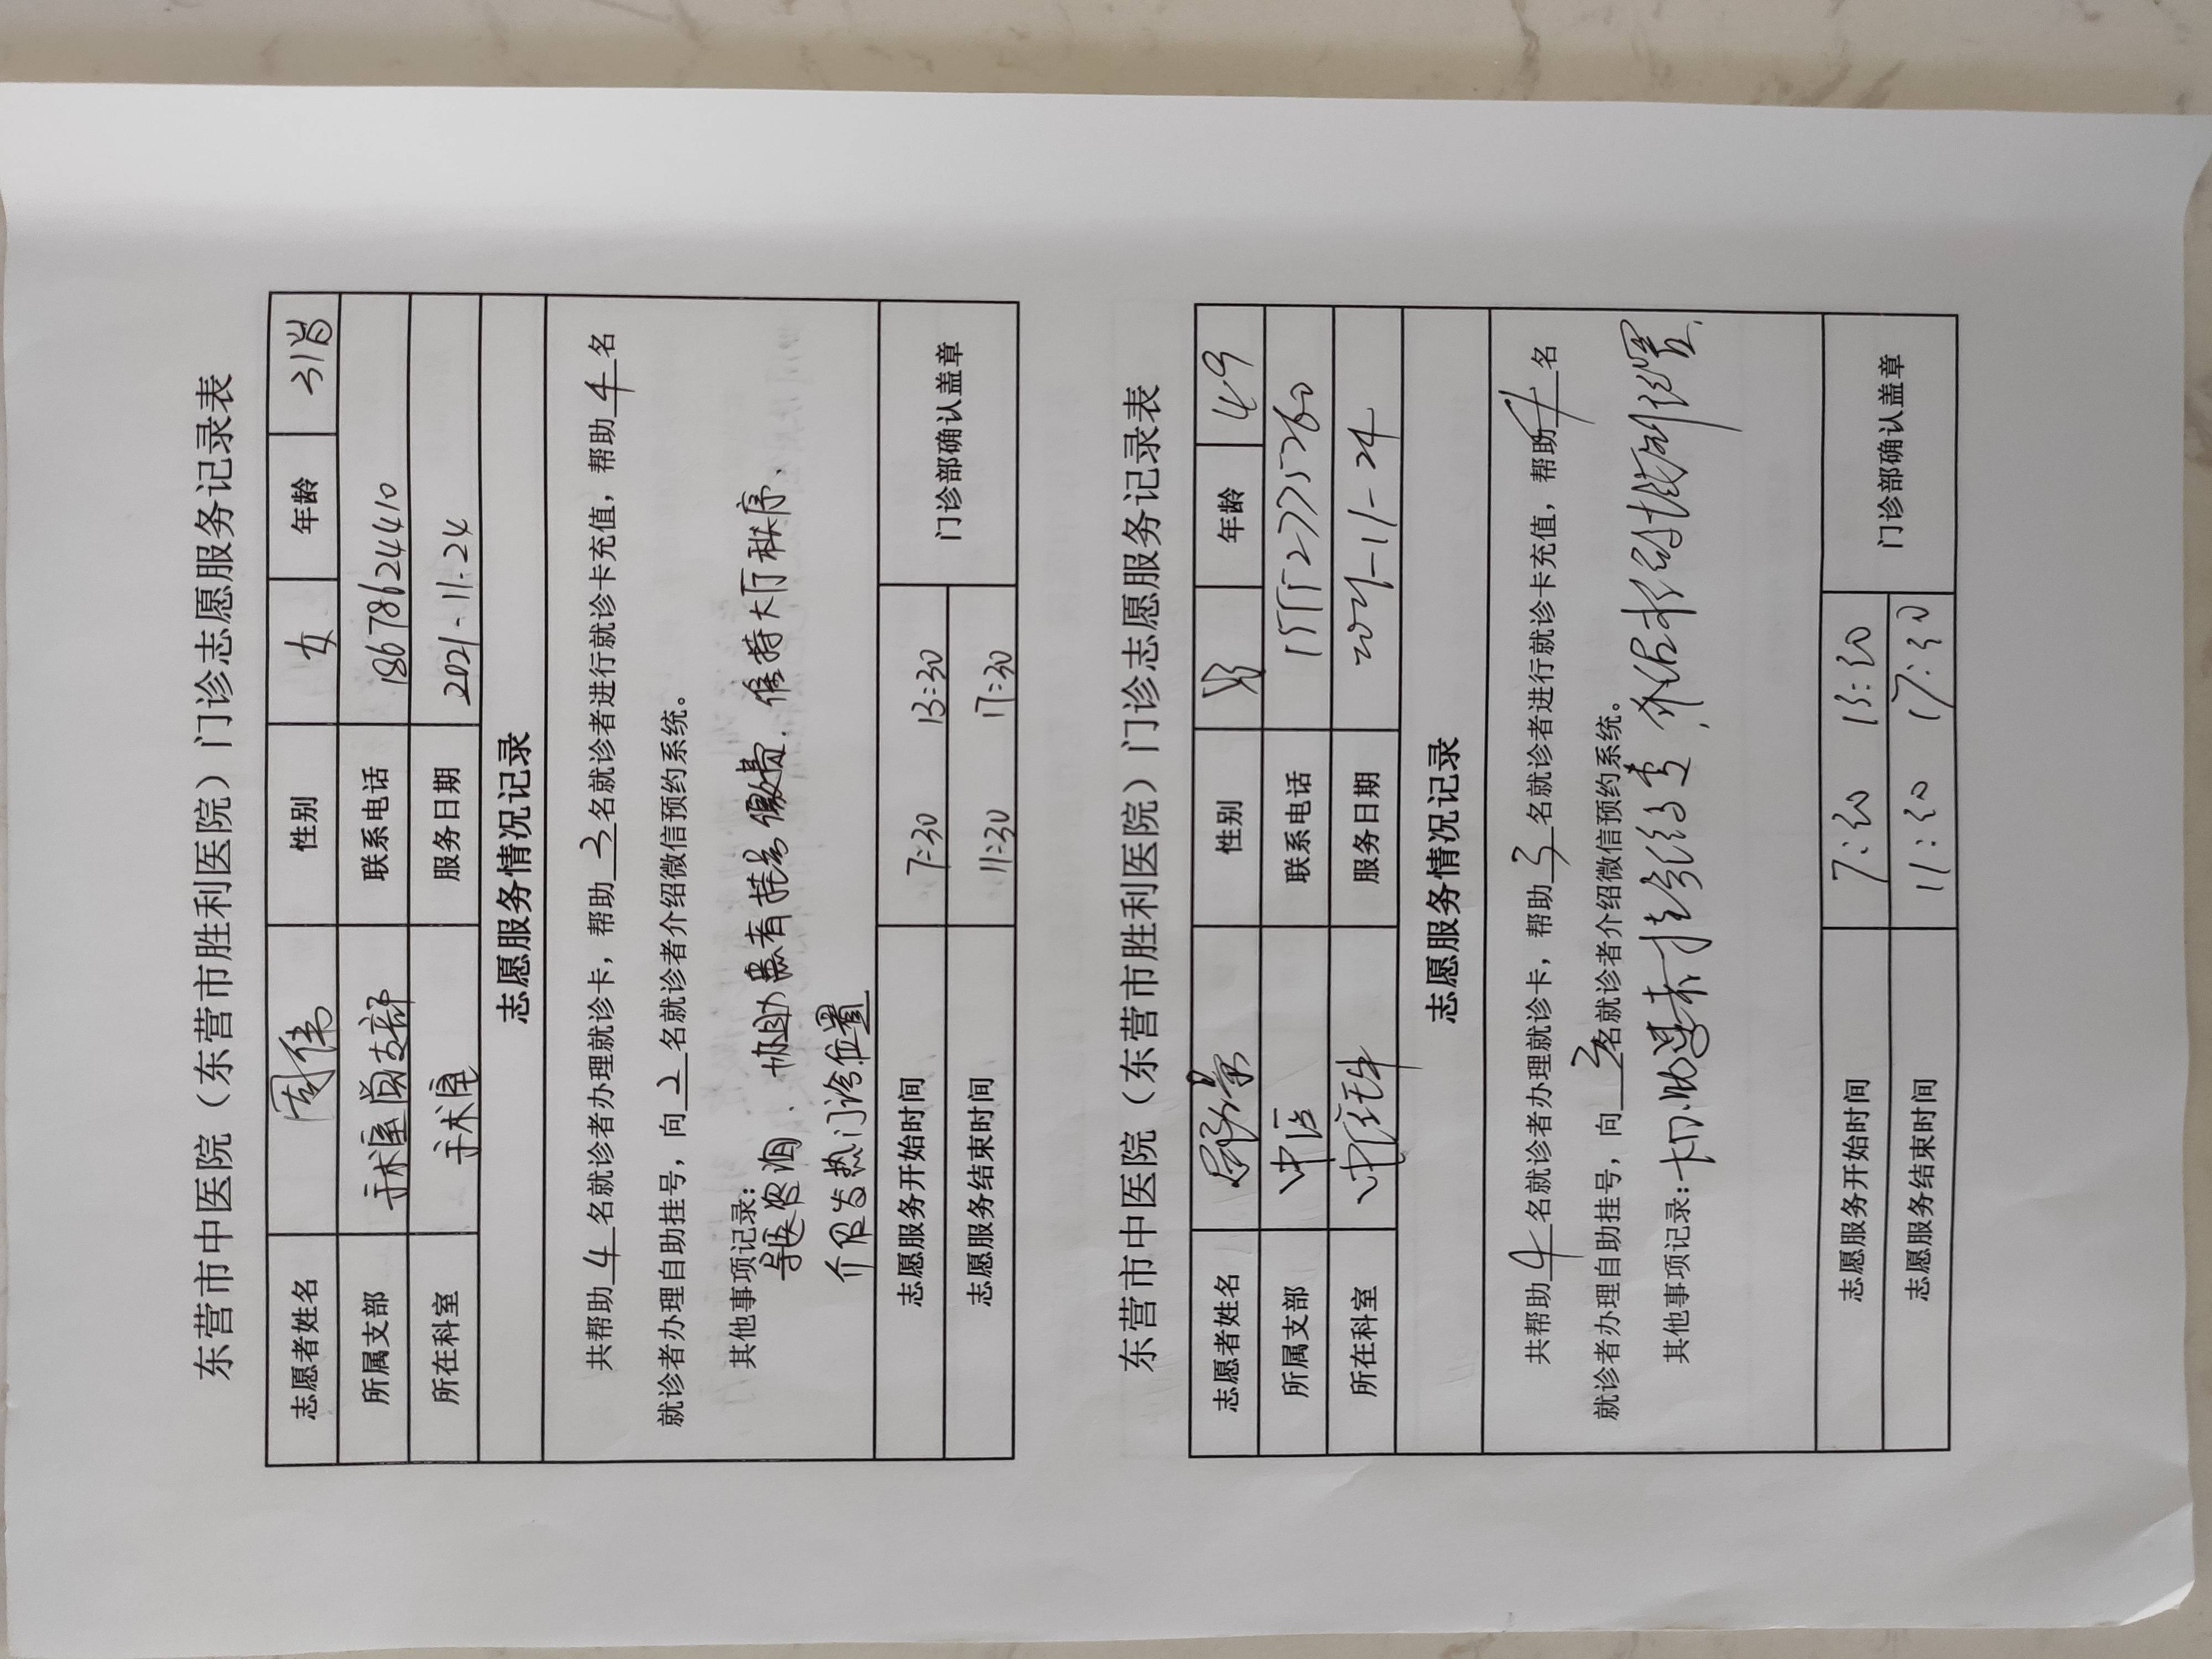 东营市中医院（东营市胜利医院）门诊志愿服务记录表
志愿者姓名 周伟 性别 女 年龄 31岁
所属支部 手术室党支部 联系电话 18678624410
所在科室 手术室 服务日期 2021-11-24
志愿服务情况记录
共帮助4名就诊者办理就诊卡，帮助3名就诊者进行就诊卡充值，帮助4名
就诊者办理自助挂号，向2名就诊者介绍微信预约系统。
其他事项记录：
导医咨询、协助患者挂号缴费、维持大厅秩序、
介绍发热门诊位置
志愿服务开始时间 7:30 13:30 门诊部确认盖章
志愿服务结束时间 11:30 17:30
东营市中医院（东营市胜利医院）门诊志愿服务记录表
志愿者姓名 性别 男 年龄 49
所属支部 中医 联系电话
所在科室 服务日期 2021-11-24
志愿服务情况记录
共帮助4名就诊者办理就诊卡，帮助3名就诊者进行就诊卡充值，帮助4名
就诊者办理自助挂号，向2名就诊者介绍微信预约系统。
其他事项记录：
志愿服务开始时间 7:30 13:30 门诊部确认盖章
志愿服务结束时间 11:30 17:30